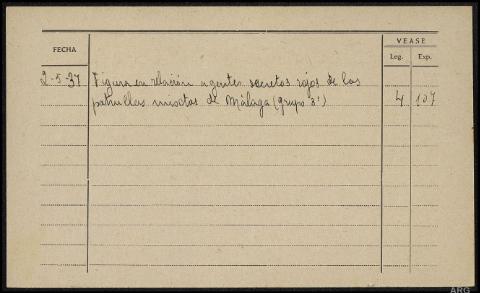 FECHA
VEASE
Leg. Exp.
2-5-37 Figura en relación agentes secretos rojos de las
patrullas mixtas de Málaga (grupo 3º) 4 107
ARG